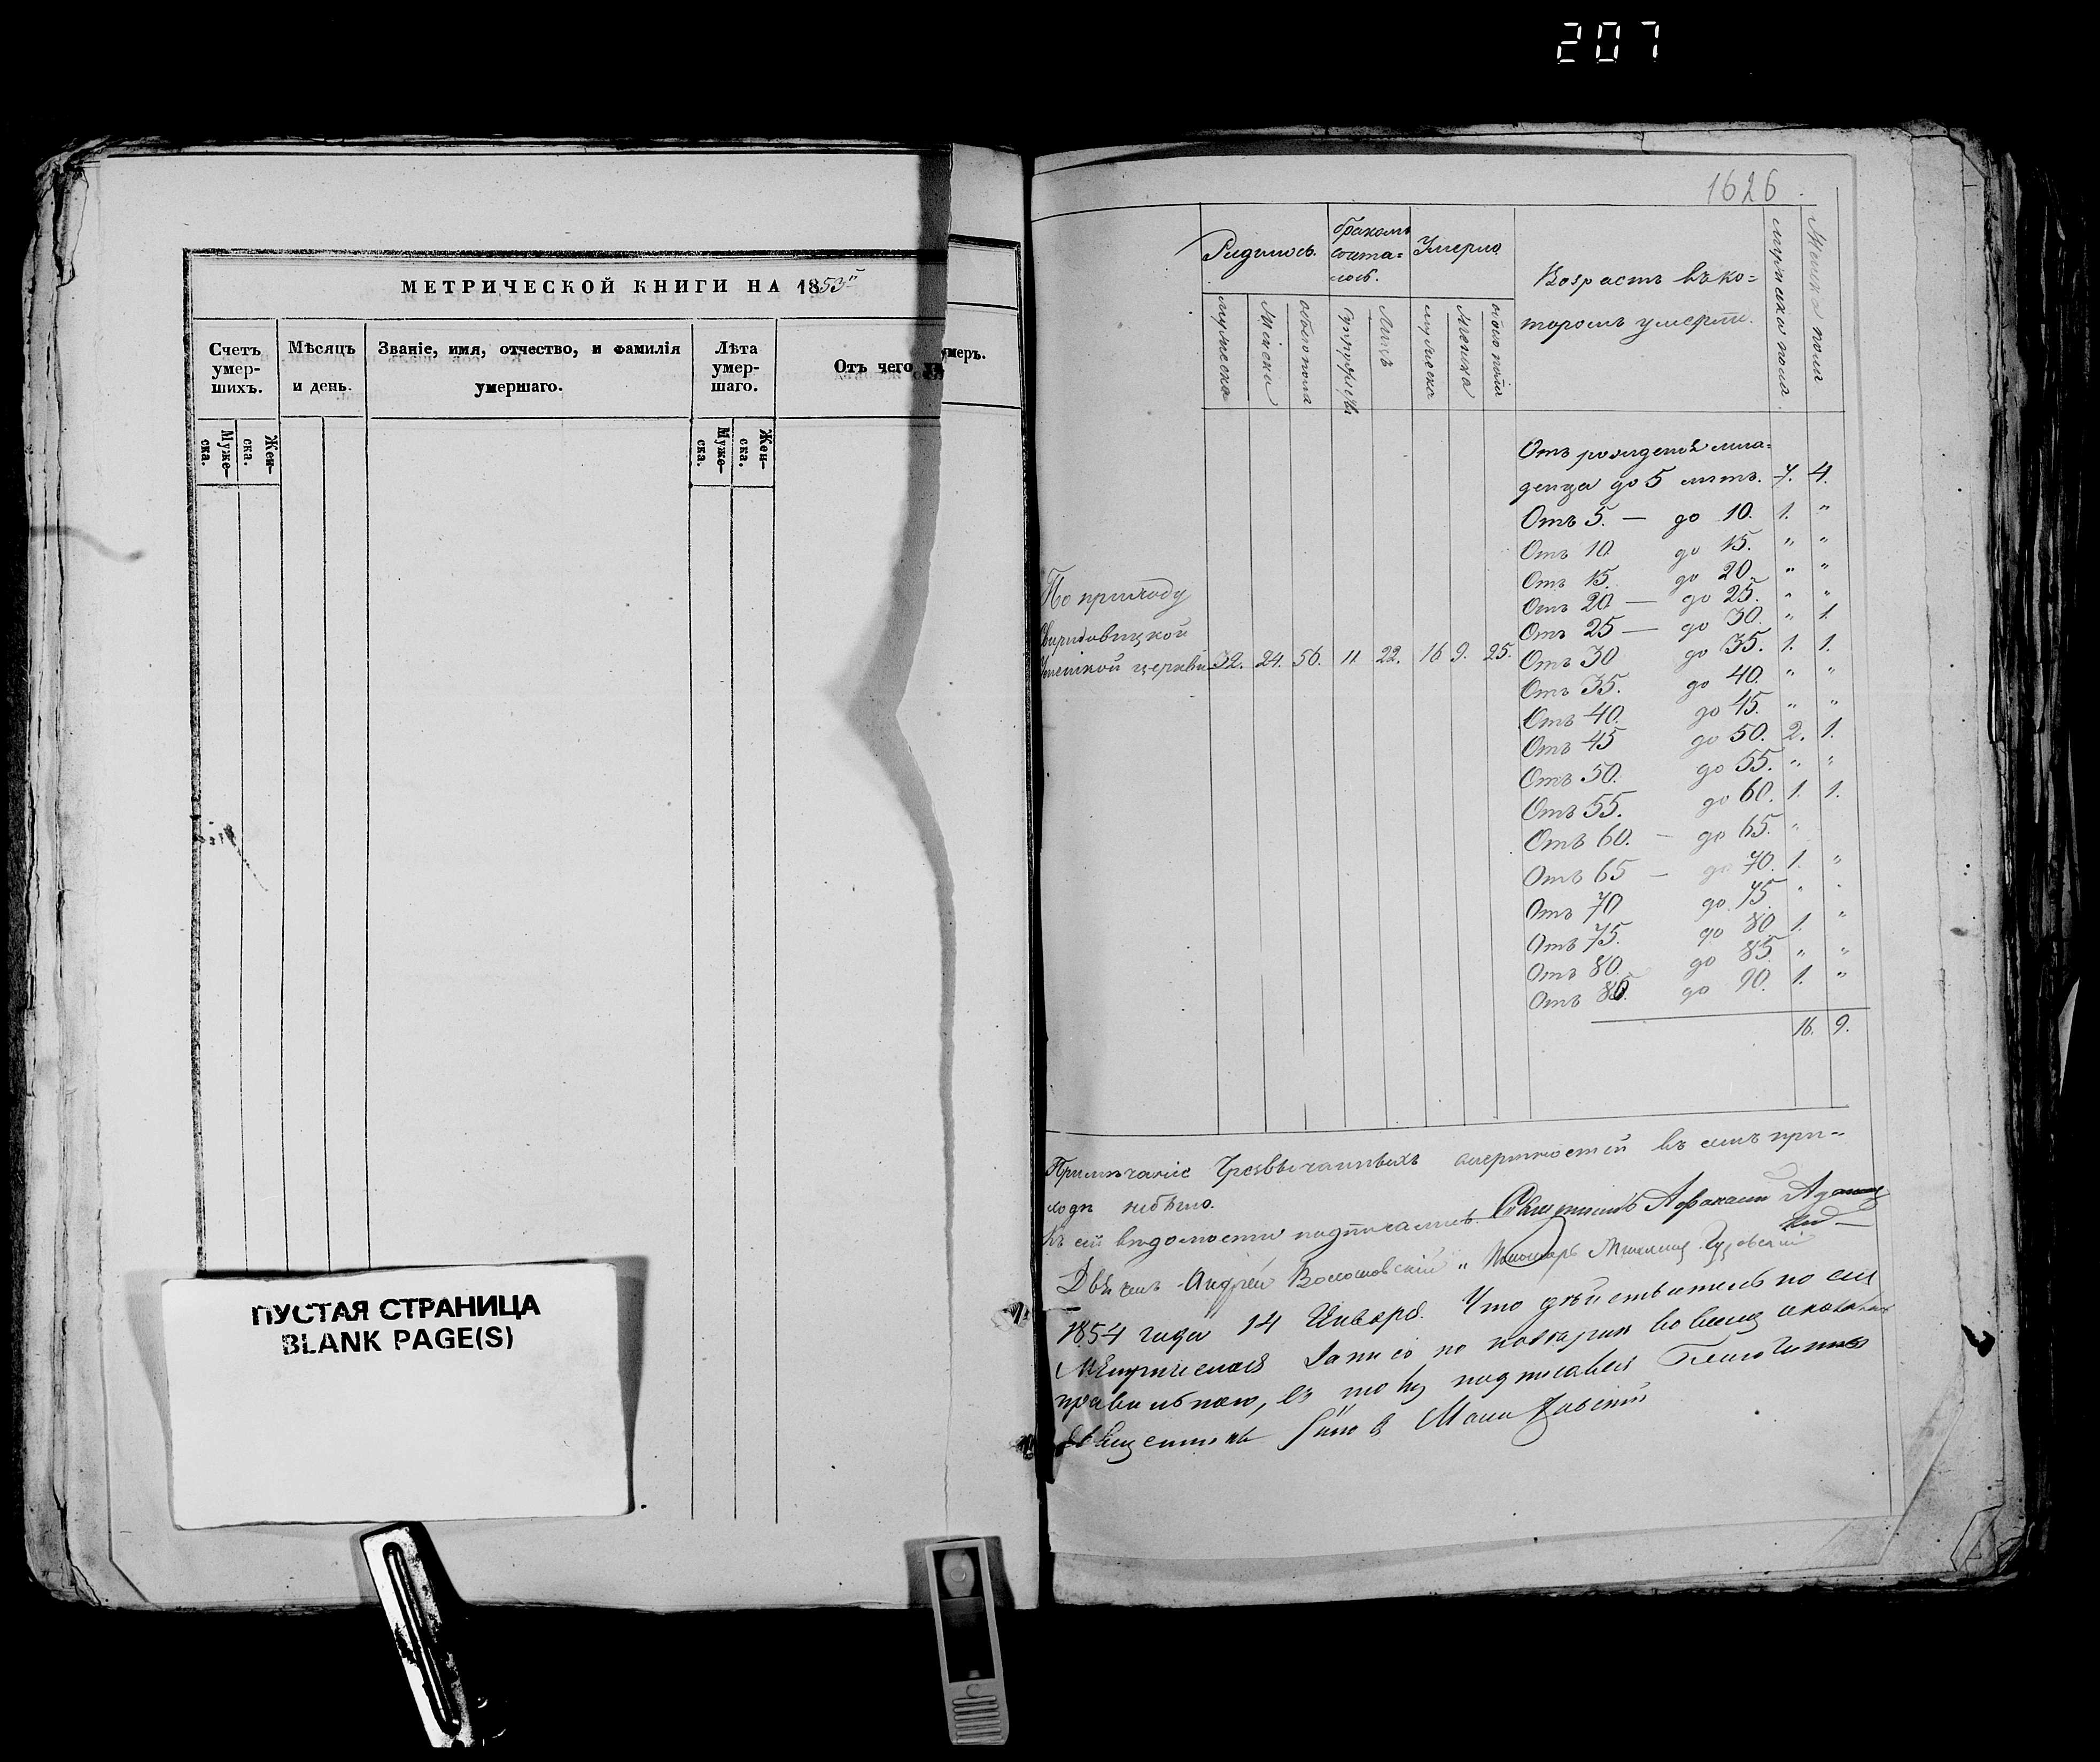 207
МЕТРИЧЕСКОЙ КНИГИ НА 1853й
Счетъ умер-шихъ.
Мѣсяцъ и день.
Званіе, имя, отчество, и фамилія умершаго.
Лѣта умер-шаго.
Отъ чего
умеръ.
Муже-ска.
Жен-ска.
Муже-ска.
Жен-ска.
ПУСТАЯ СТРАНИЦА
BLANK PAGE(S)
1626
Родилось.
бракомъ сочета-лось.
Умерло
Возрастъ въ ко=
торомъ умерли.
мужеска пола
Женска пола
мужеска
Женска
обоего пола
Супружествъ
Лицъ
мужеска
Женска
обоего пола
Отъ рожденія мла=
денца до 5 лѣтъ. 7. 4.
Отъ 5. — до 10. 1. "
Отъ 10 до 15. " "
Отъ 15. до 20. " "
Отъ 20 — до 25. " "
Отъ 25 — до 30. " 1.
Отъ 30 до 35. 1. 1.
Отъ 35. до 40. " "
Отъ 40. до 45. " "
Отъ 45 до 50. 2. 1.
Отъ 50. до 55. " "
Отъ 55. до 60. 1. 1.
Отъ 60. — до 65. "
Отъ 65 — до 70. 1. "
Отъ 70 до 75. " "
Отъ 75. до 80 1. "
Отъ 80. до 85. " "
Отъ 85. до 90. 1. "
16. 9.
По приходу
церкви 32. 24. 56. 11. 22. 16 9. 25.
Примѣчаніе Чрезвычайныхъ смертностей въ семъ при=
ходѣ небыло.
Къ сей вѣдомости подписались. Священникъ Афанасій
Дьячекъ Андрей Пономарь
1854 года 14 Января. Что дѣйствительно сія
Метрическая запись по
правильною, въ томъ подписался Благочинный
Священникъ